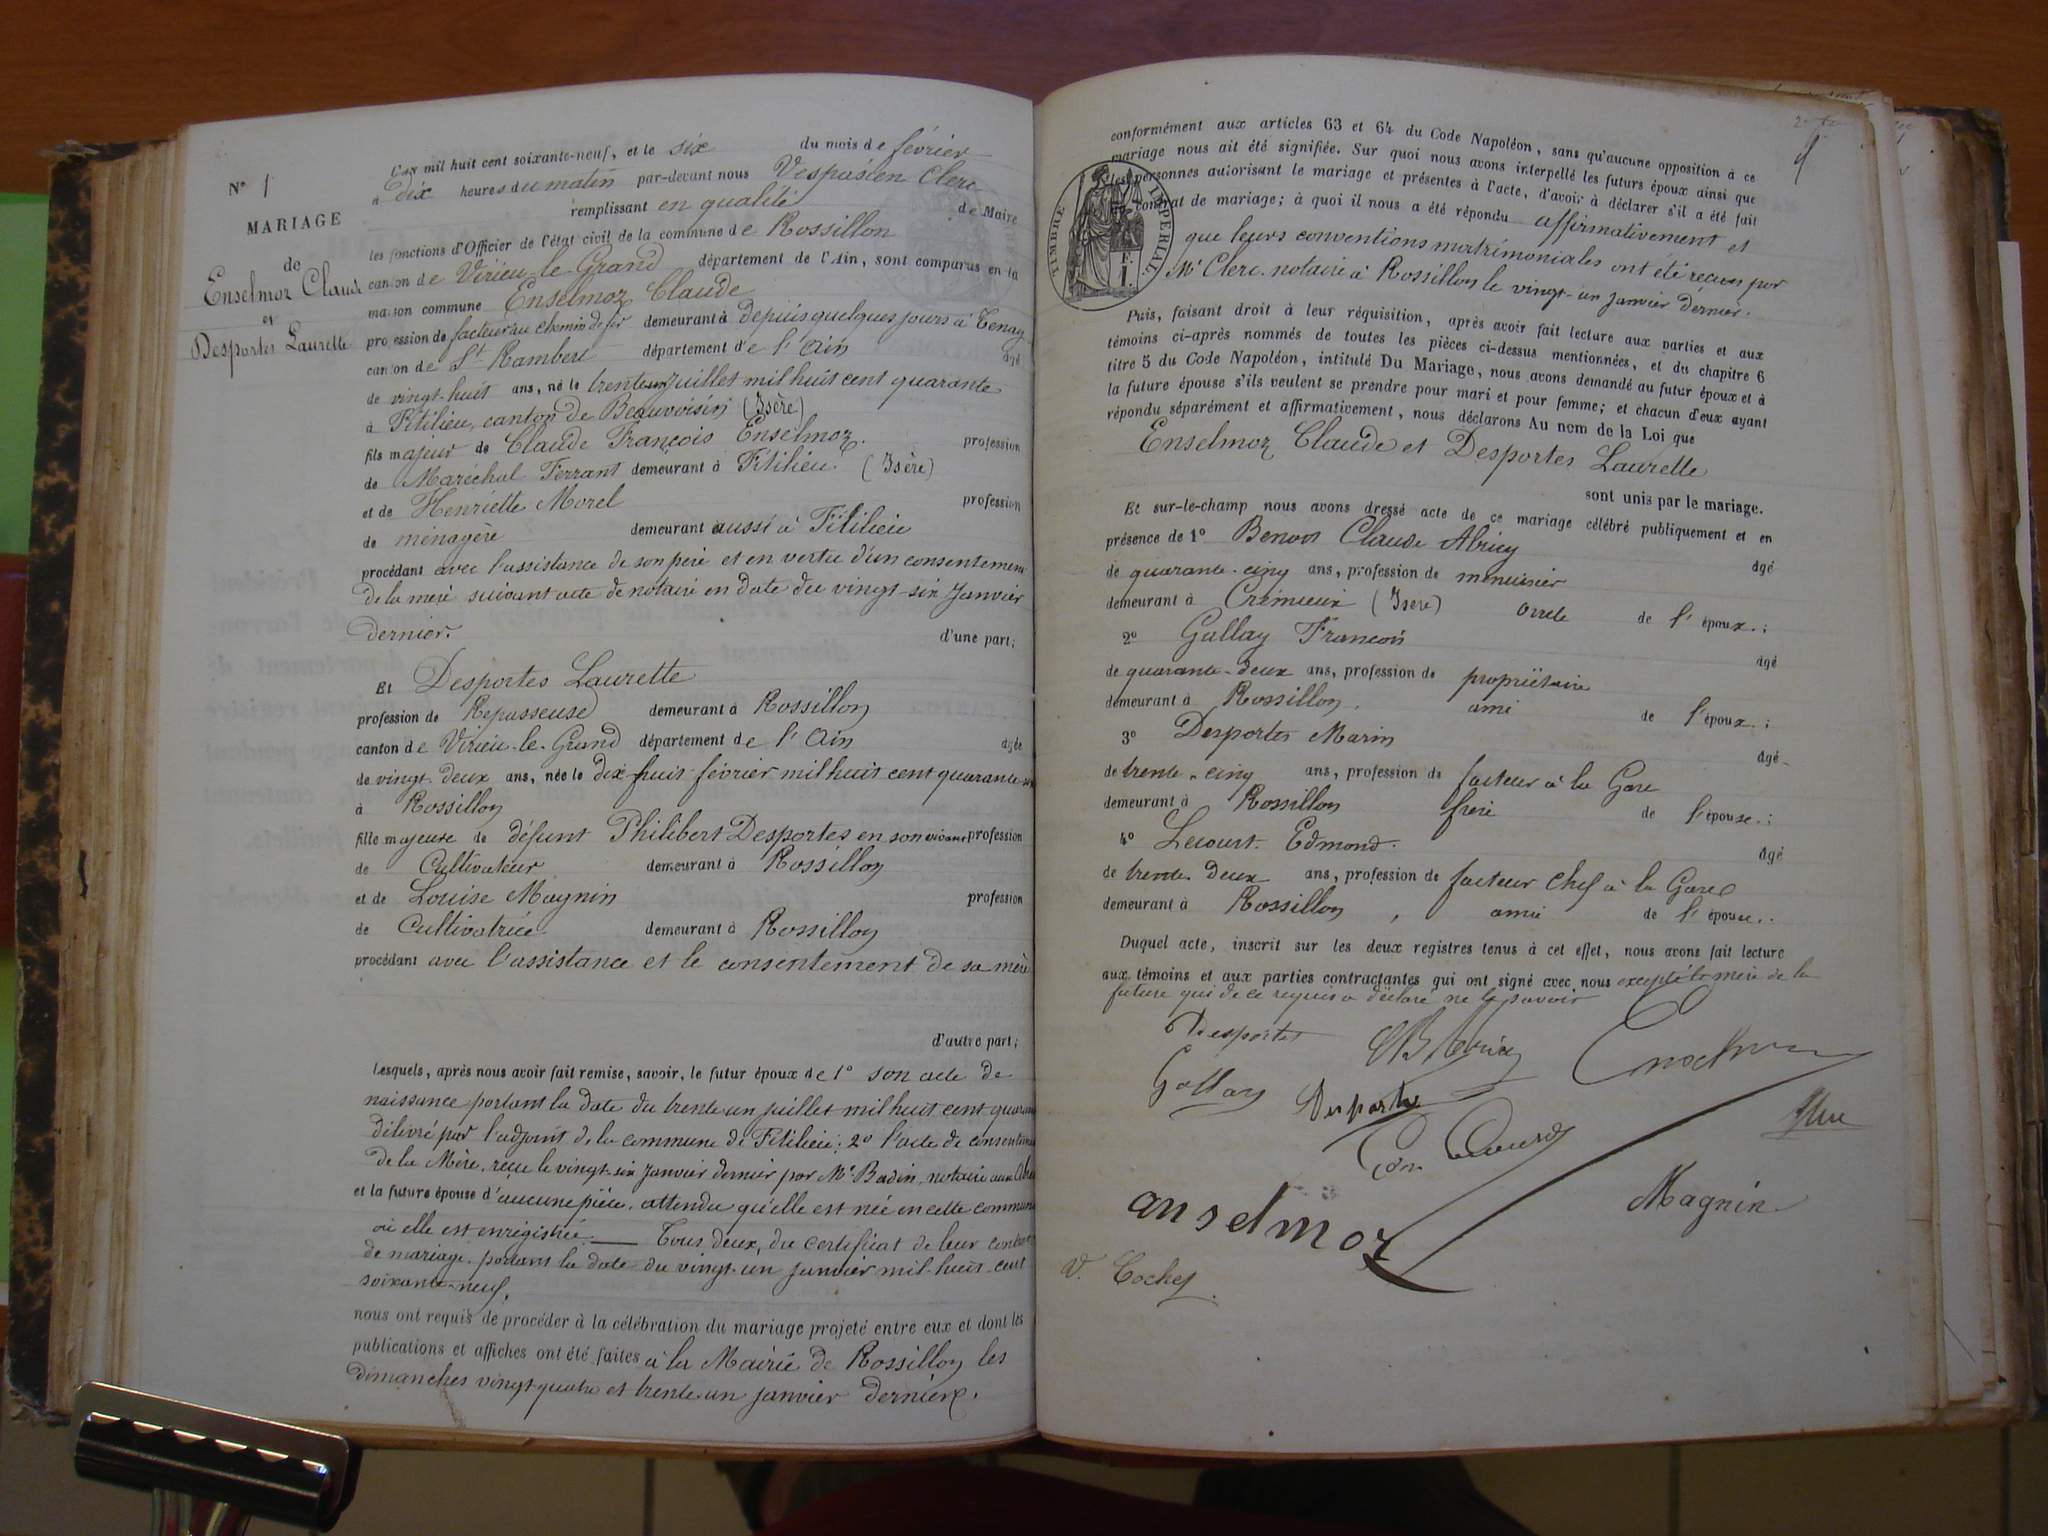 N° 1
MARIAGE
de
Enselmoz Claude
et
Desportes Laurette
L'an mil huit cent soixante-neuf, et le six du mois de février
à Dix heures du matin par-devant nous Vespasien Clerc
remplissant en qualité de Maire
les fonctions d'Officier de l'état civil de la commune de Rossillon
canton de Virieu-le-Grand département de l'Ain, sont comparus en la
maison commune Enselmoz Claude
profession de facteur au chemin de fer demeurant à depuis quelques jours à Tenay
canton de St Rambert département de l'Ain âgé
de vingt-huit ans, né le trente un juillet mil huit cent quarante
à Fitilieu, canton de Beauvoisin (Isère)
fils majeur de Claude François Enselmoz. profession
de Maréchal Ferrant demeurant à Fitilieu (Isère)
et de Henriette Morel profession
de ménagère demeurant aussi à Fitilieu
procédant avec l'assistance de son père et en vertu d'un consentement
de la mère suivant acte de notaire en date du vingt-six Janvier
dernier. d'une part;
Et Desportes Laurette
profession de Repasseuse demeurant à Rossillon
canton de Virieu-le-Grand département de l'Ain âgée
de vingt-deux ans, née le dix-huit février mil huit cent quarante-six
à Rossillon
fille majeure de défunt Philibert Desportes en son vivant profession
de Cultivateur demeurant à Rossillon
et de Louise Magnin profession
de Cultivatrice demeurant à Rossillon
procédant avec l'assistance et le consentement de sa mère
d'autre part;
Lesquels, après nous avoir fait remise, savoir, le futur époux de 1° son acte de
naissance portant la date du trente un juillet mil huit cent quarante
délivré par l'adjoint de la commune de Fitilieu; 2° l'acte de consentement
de la Mère, reçu le vingt-six Janvier dernier par Me Badin, notaire aux
et la future épouse d'aucune pièce, attendu qu'elle est née en cette commune
où elle est enregistrée. — Tous deux, du certificat de leur contrat
de mariage portant la date du vingt-un janvier mil-huit-cent
soixante-neuf,
nous ont requis de procéder à la célébration du mariage projeté entre eux et dont les
publications et affiches ont été faites à la Mairie de Rossillon les
dimanches vingt-quatre et trente-un janvier derniers.
conformément aux articles 63 et 64 du Code Napoléon, sans qu'aucune opposition à ce
mariage nous ait été signifiée. Sur quoi nous avons interpellé les futurs époux ainsi que
les personnes autorisant le mariage et présentes à l'acte, d'avoir à déclarer s'il a été fait
un contrat de mariage; à quoi il nous a été répondu affirmativement et
que leurs conventions matrimoniales ont été reçues par
Me Clerc, notaire à Rossillon le vingt-un janvier dernier.
TIMBRE IMPERIAL
1 F.
Puis, faisant droit à leur réquisition, après avoir fait lecture aux parties et aux
témoins ci-après nommés de toutes les pièces ci-dessus mentionnées, et du chapitre 6
titre 5 du Code Napoléon, intitulé Du Mariage, nous avons demandé au futur époux et à
la future épouse s'ils veulent se prendre pour mari et pour femme; et chacun d'eux ayant
répondu séparément et affirmativement, nous déclarons Au nom de la Loi que
Enselmoz Claude et Desportes Laurette
sont unis par le mariage.
Et sur-le-champ nous avons dressé acte de ce mariage célébré publiquement et en
présence de 1° Benoit Claude Abricy âgé
de quarante-cinq ans, profession de menuisier
demeurant à Crémieux (Isère) oncle de l'époux.;
2° Gallay François âgé
de quarante-deux ans, profession de propriétaire
demeurant à Rossillon, ami de l'époux.;
3° Desportes Marin âgé
de trente-cinq ans, profession de facteur à la Gare
demeurant à Rossillon frère de l'épouse.;
4° Lecourt Edmond. âgé
de trente-deux ans, profession de facteur chef à la Gare
demeurant à Rossillon, ami de l'épouse..
Duquel acte, inscrit sur les deux registres tenus à cet effet, nous avons fait lecture
aux témoins et aux parties contractantes qui ont signé avec nous excepté la mère de la
future qui de ce requis a déclaré ne le savoir
Desportes
Gallay
Desportes
anselmoz
Magnin
V. Cochet